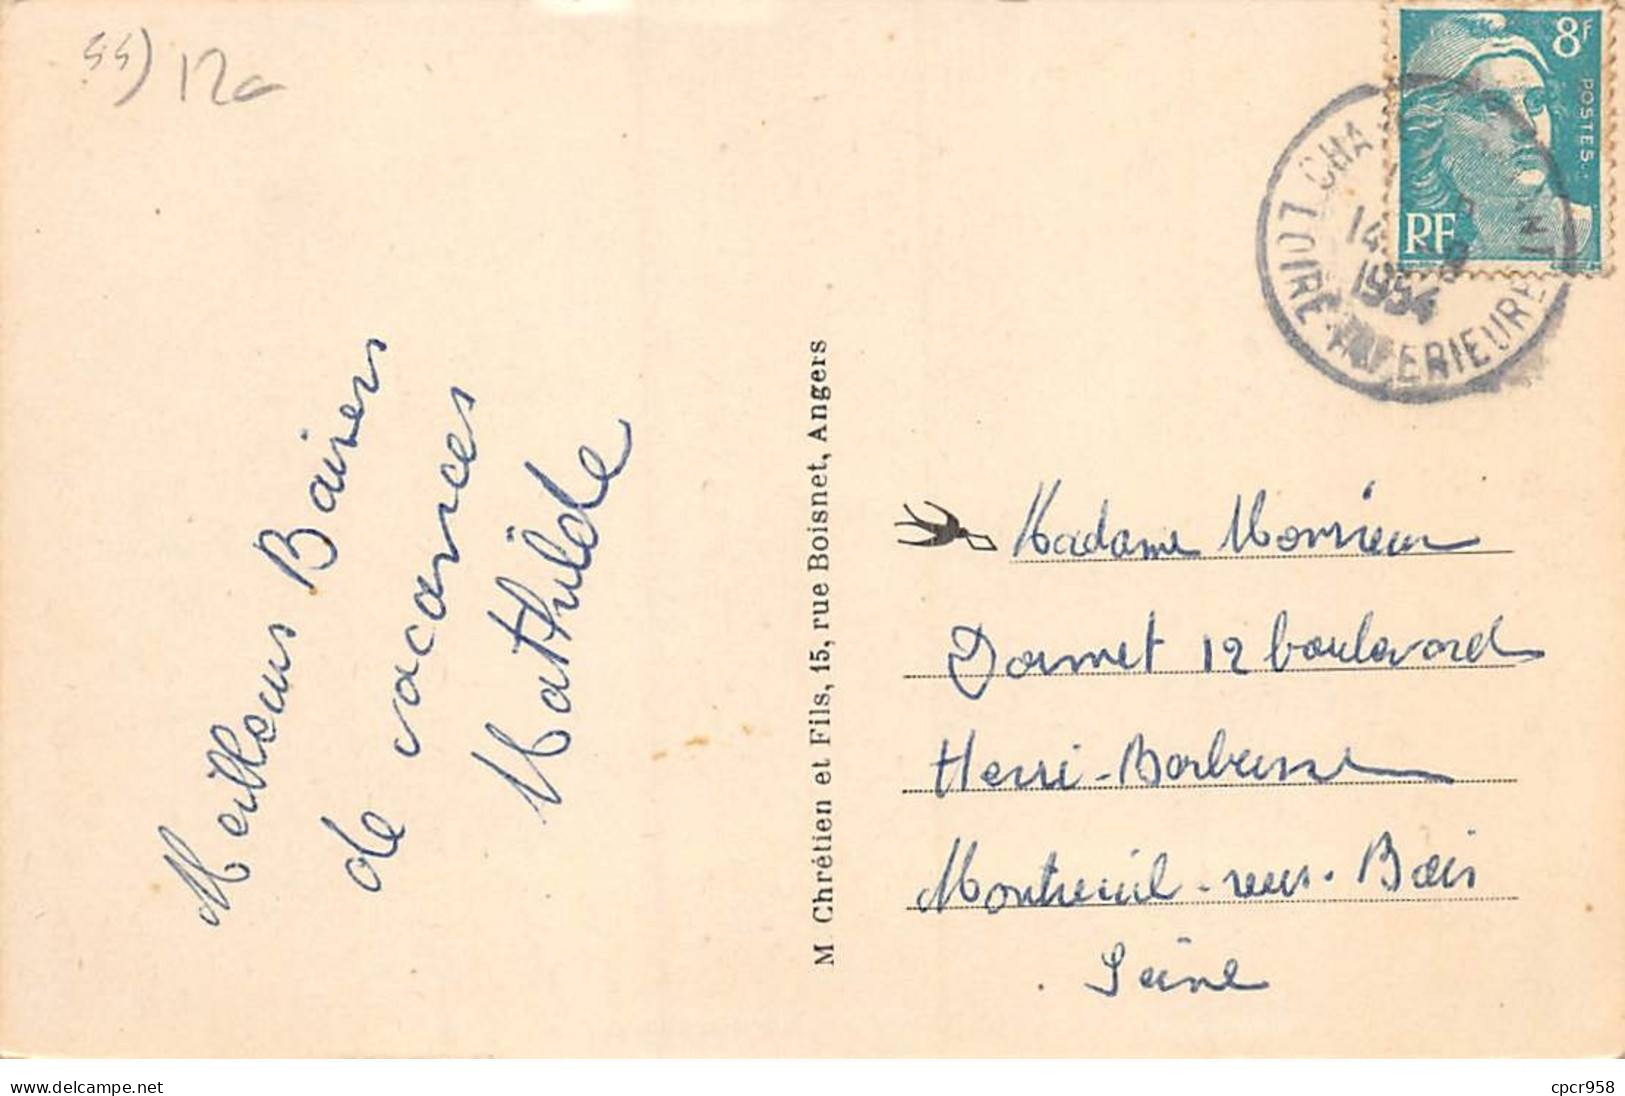 44) 12
Meilleurs Baisers
de vacances
Mathilde
M Chrétien et Fils, 15, rue Boisnet, Angers
8F
POSTES
RF
CHA
ANT
LOIRE-INFERIEURE
14
1954
Madame Monsieur
Dormet 12 boulevard
Henri-Barbusse
Montreuil-sous-Bois
Seine
www.delcampe.net
cpcr958